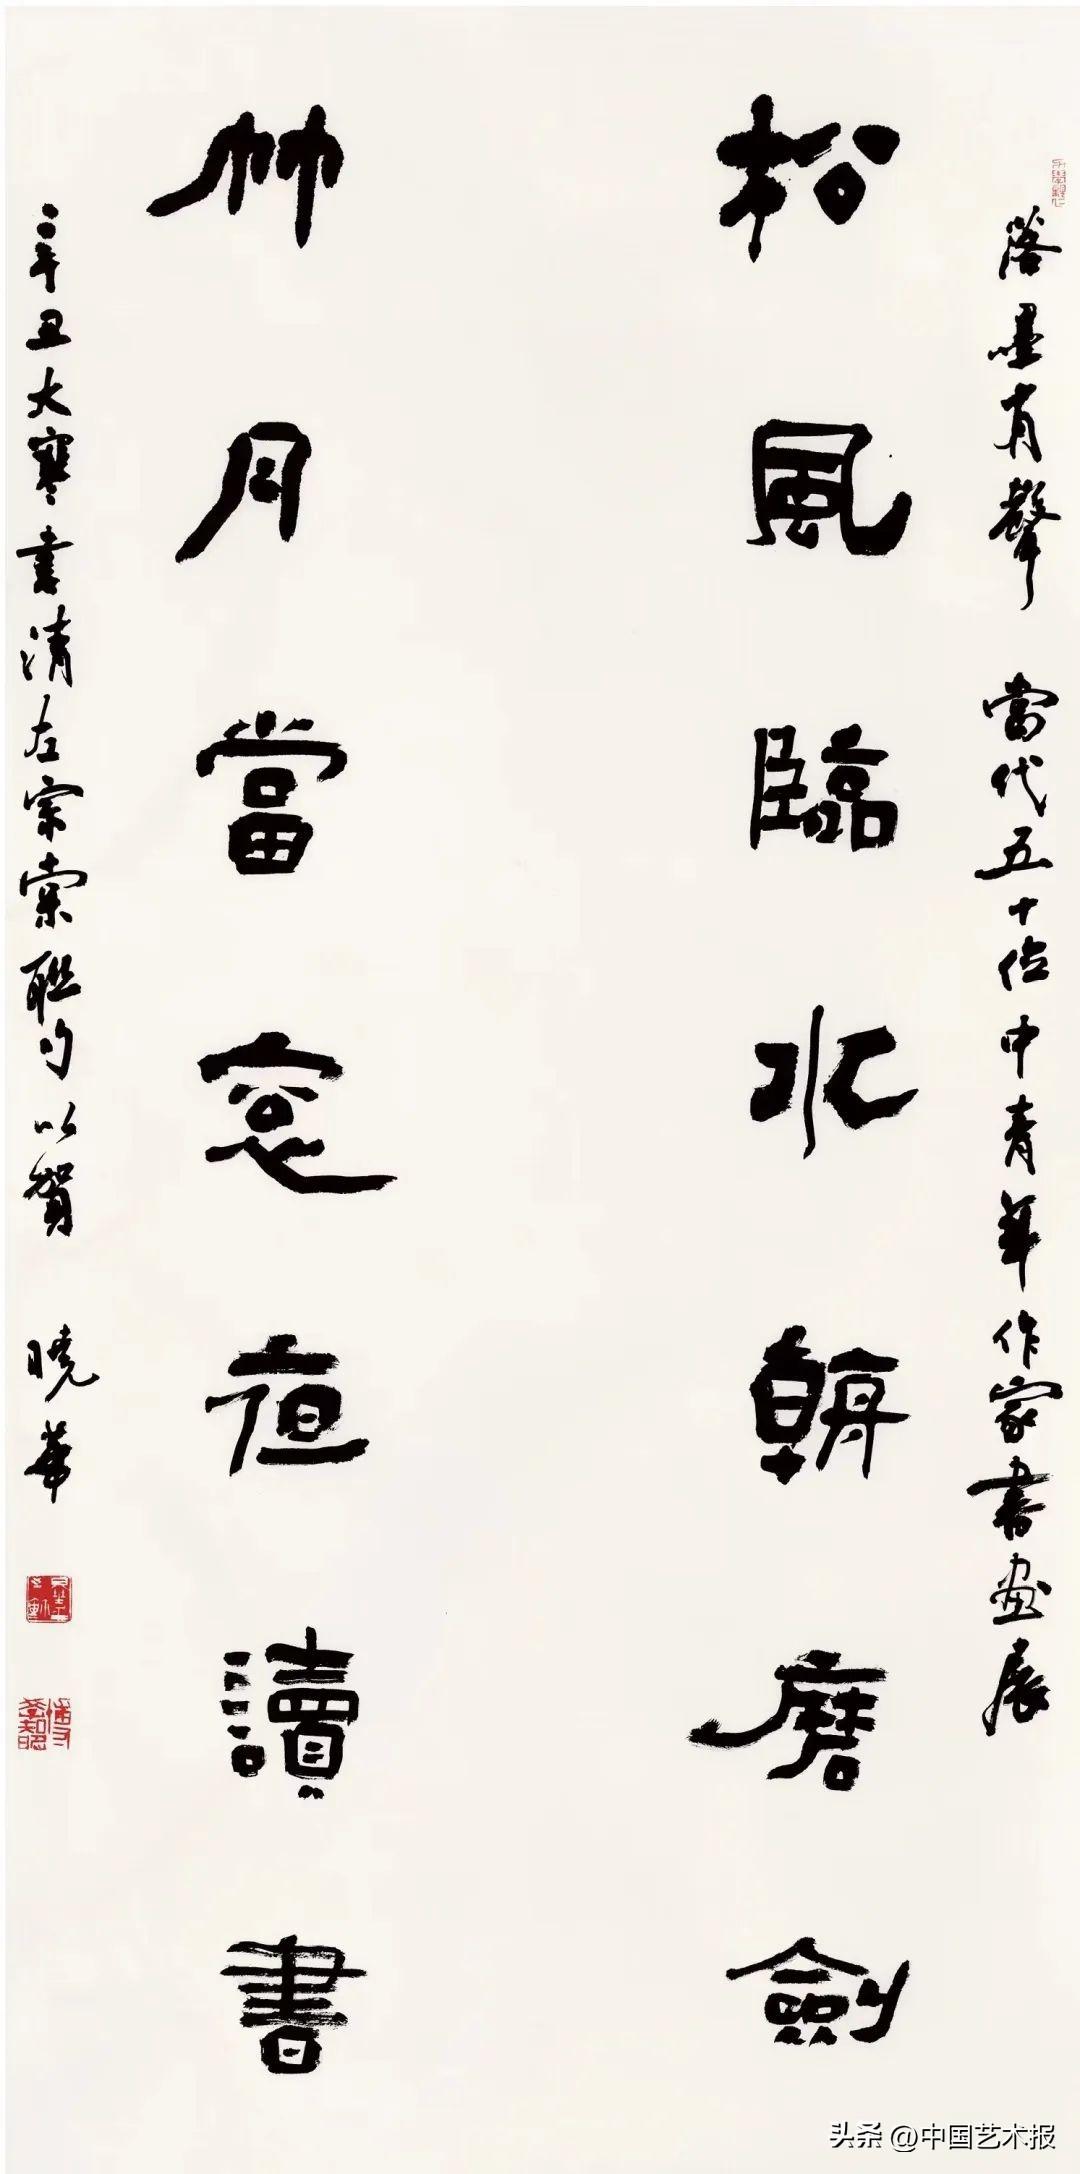 落墨有聲 當代五十位中青年作家書畫展
松風臨水朝磨劍
竹月當窓夜讀書
辛丑大寒書清左宗棠聯句以賀 曉華
头条 @中国艺术报